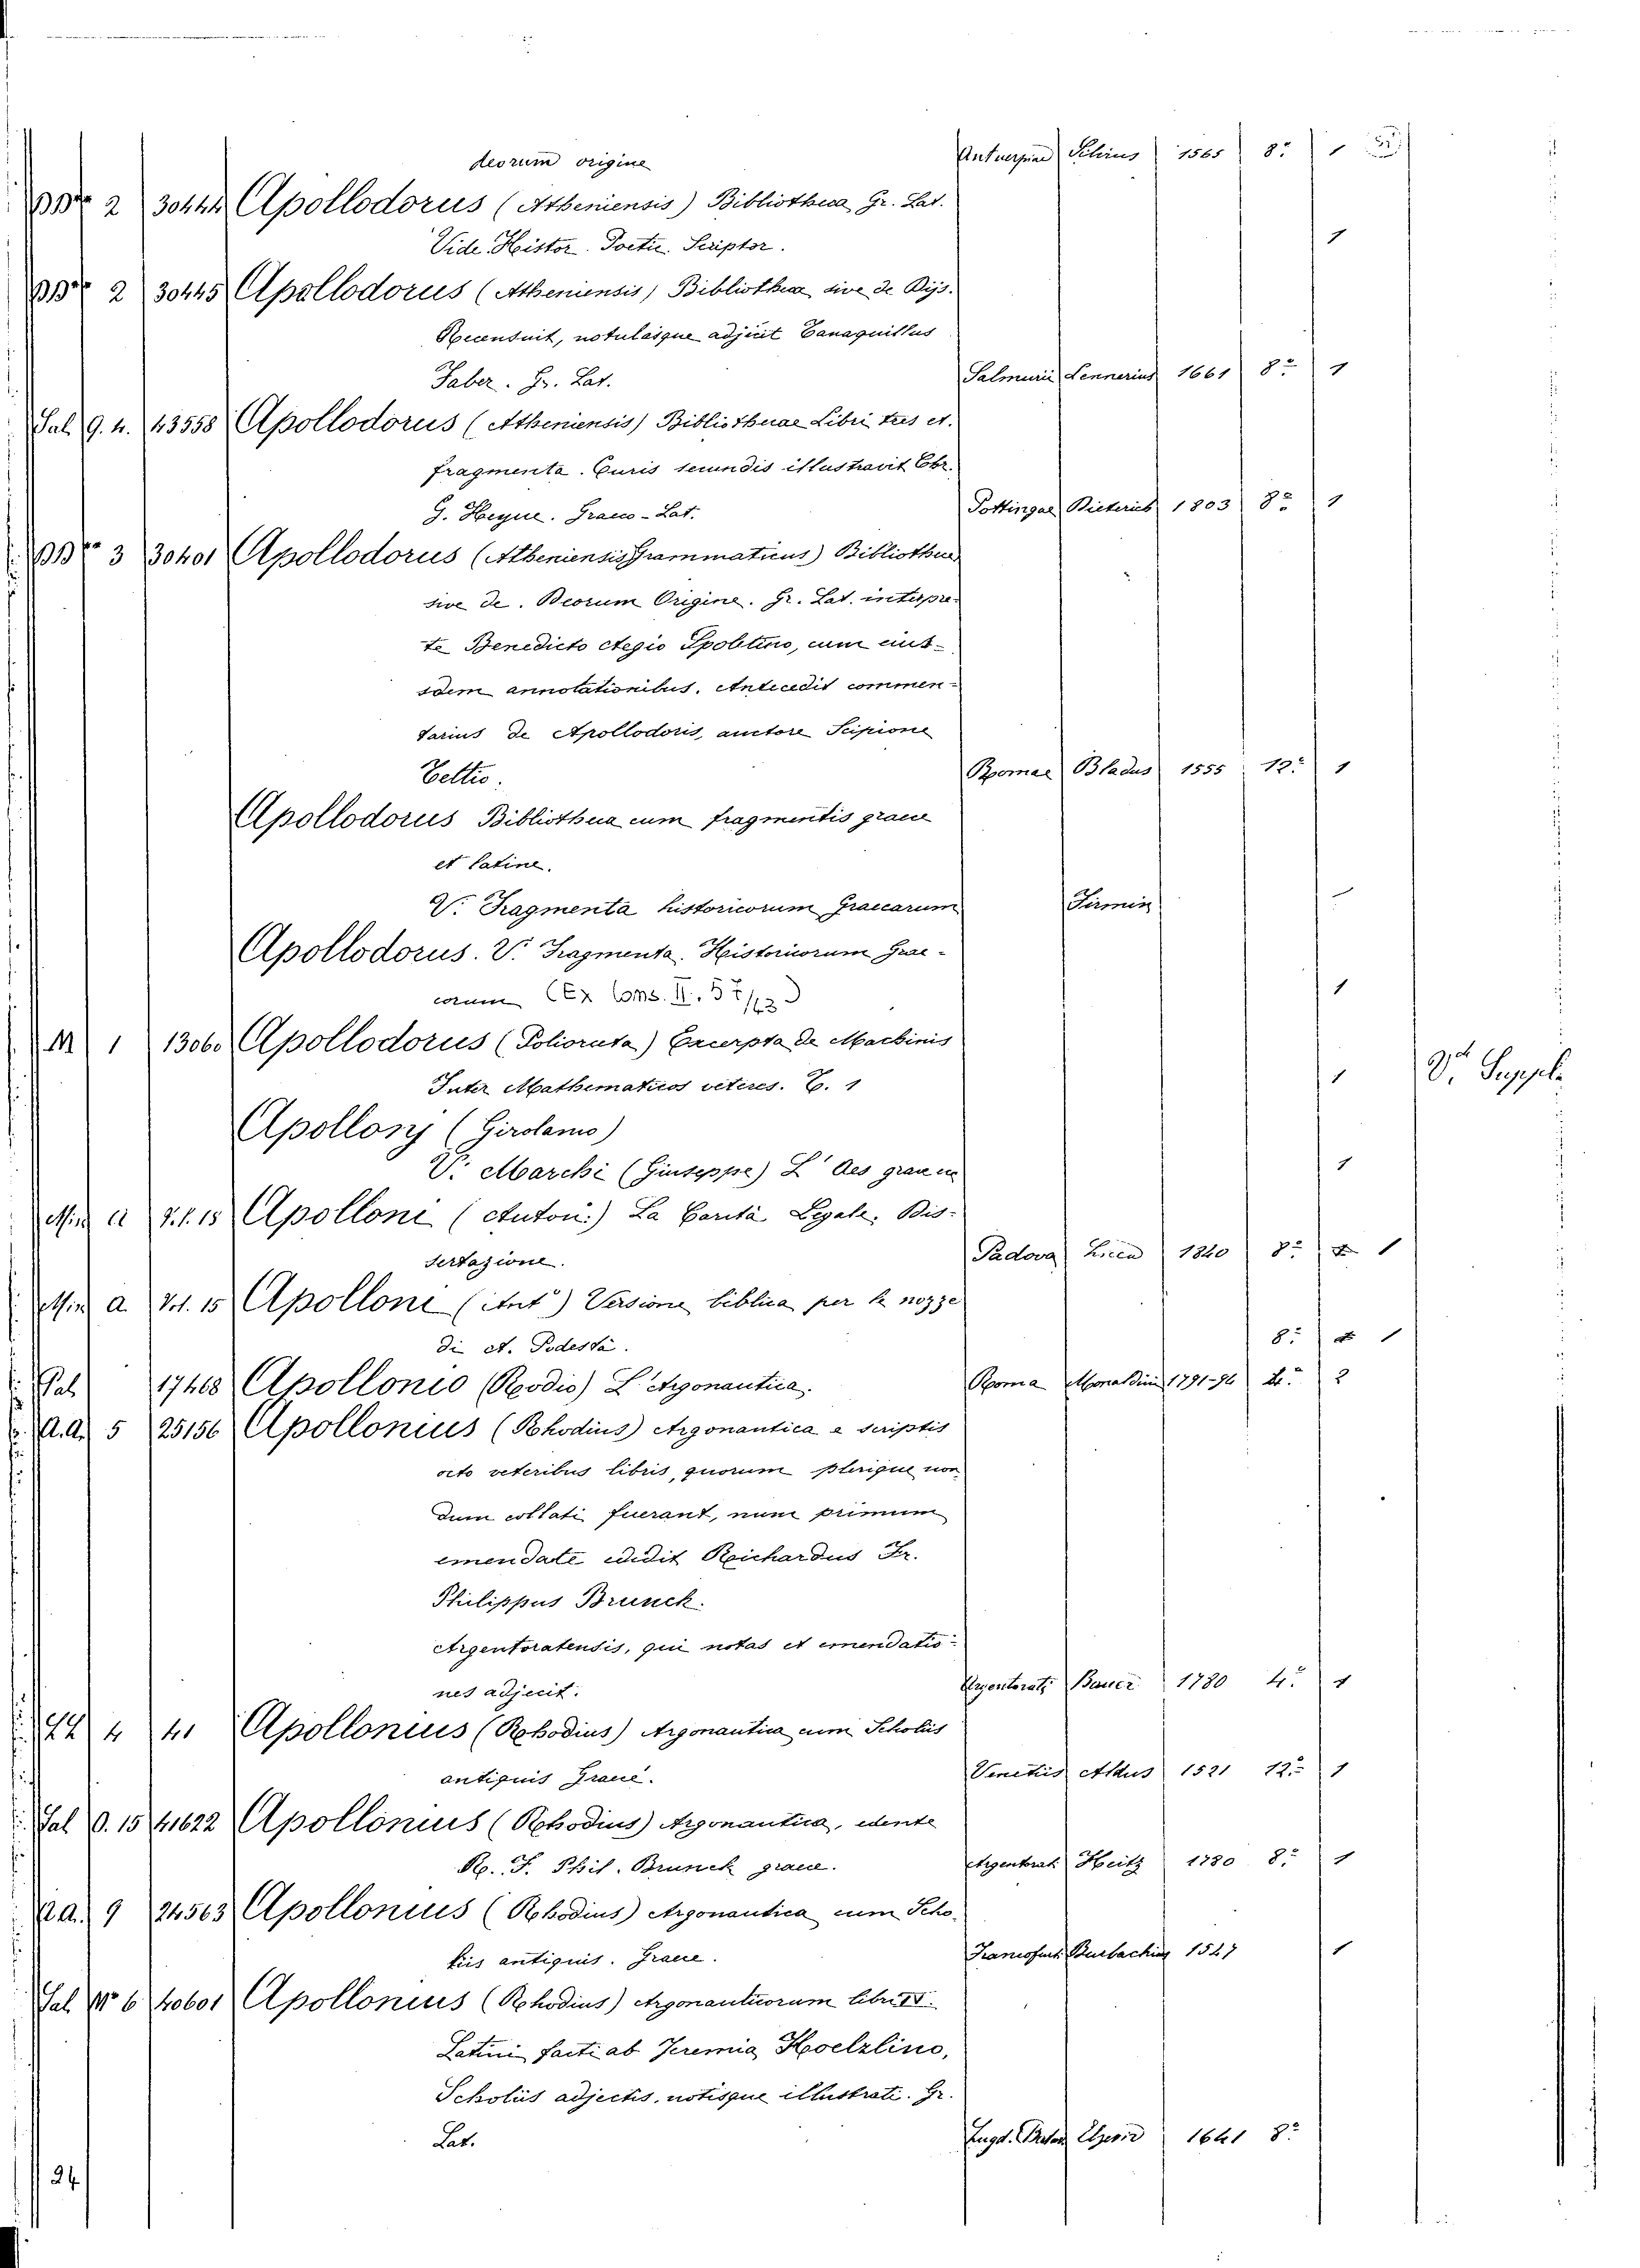 deorum origine Antuerpiae Silvius 1565 8º 1
BBr 2 30444 Apollodorus (Atheniensis) Bibliotheca Gr. Lat.
Vide Histor. Poetic. Scriptor. 1
BBr 2 30445 Apollodorus (Atheniensis) Bibliotheca sive de Dijs.
Recensuit, notulasque adjecit Tanaquillus
Faber. Gr. Lat. Salmurii Lennerius 1661 8º 1
Sal. 9. 4. 43558 Apollodorus (Atheniensis) Bibliothecae Libri tres et.
fragmenta. Curis secundis illustravit Chr.
G. Heyne. Graeco-Lat. Gottingae Dieterich 1803 8º 1
BBr 3 30401 Apollodorus (Atheniensis Grammaticus) Bibliotheca
sive de. Deorum Origine. Gr. Lat. interpre-
te Benedicto Aegio Spoletino, cum eius-
sdem annotationibus. Antecedit commen-
tarius de Apollodoris, auctore Scipione
Tettio. Romae Bladus 1555 12º 1
Apollodorus Bibliotheca cum fragmentis graece
et latine.
V. Fragmenta historicorum Graecarum Firmin
Apollodorus. V. Fragmenta Historicorum Grae-
corum (Ex Coms. II. 57/43) 1
M 1 13060 Apollodorus (Poliorceta) Excerpta de Machinis
Inter Mathematicos veteres. C. 1 1 Vº Suppl.
Apollonj (Girolamo)
V. Marchi (Giuseppe) L' Aes grave 1
Min a V.l. 15 Apolloni (Anton.) La Carità Legale, Dis-
sertazione. Padova Sicca 1840 8º 1
Min a Vol. 15 Apolloni (Antº) Versione biblica per le nozze
di A. Podestà. 8º 1
Sal 17468 Apollonio (Rodio) L'Argonautica. Roma Monaldini 1791-94 4º 2
A.A. 5 25156 Apollonius (Rhodius) Argonautica e scriptis
octo veteribus libris, quorum plerique non
dum collati fuerant, nunc primum
emendate edidit Reichardus Fr.
Philippus Brunck.
Argentoratensis, qui notas et emendatio-
nes adjecit. Argentorati Bauer 1780 4º 1
4 41 Apollonius (Rhodius) Argonautica cum Scholiis
antiquis Graece. Venetiis Aldus 1521 12º 1
Sal O. 15 41622 Apollonius (Rhodius) Argonautica, edente
R. F. Phil. Brunck graece. Argentorat. Heitz 1780 8º 1
A.A. 9 24563 Apollonius (Rhodius) Argonautica cum Scho-
liis antiquis. Graece. Francofurt. Burbachius 1547 1
Sal. Nº 6 40601 Apollonius (Rhodius) Argonauticorum libri IV.
Latini facti ab Jeremia Hoelzlino,
Scholiis adjectis, notisque illustrati. Gr.
Lat. Lugd. Batav. Elzevir 1641 8º
24